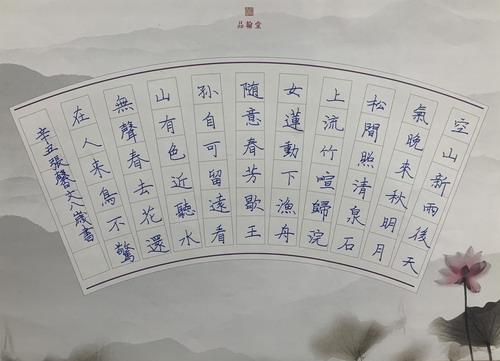 品翰堂
空山新雨後天
氣晚來秋明月
松間照清泉石
上流竹喧歸浣
女蓮動下漁舟
隨意春芳歇王
孙自可留遠看
山有色近聽水
無聲春去花還
在人來鳥不驚
辛丑張馨文八歲書